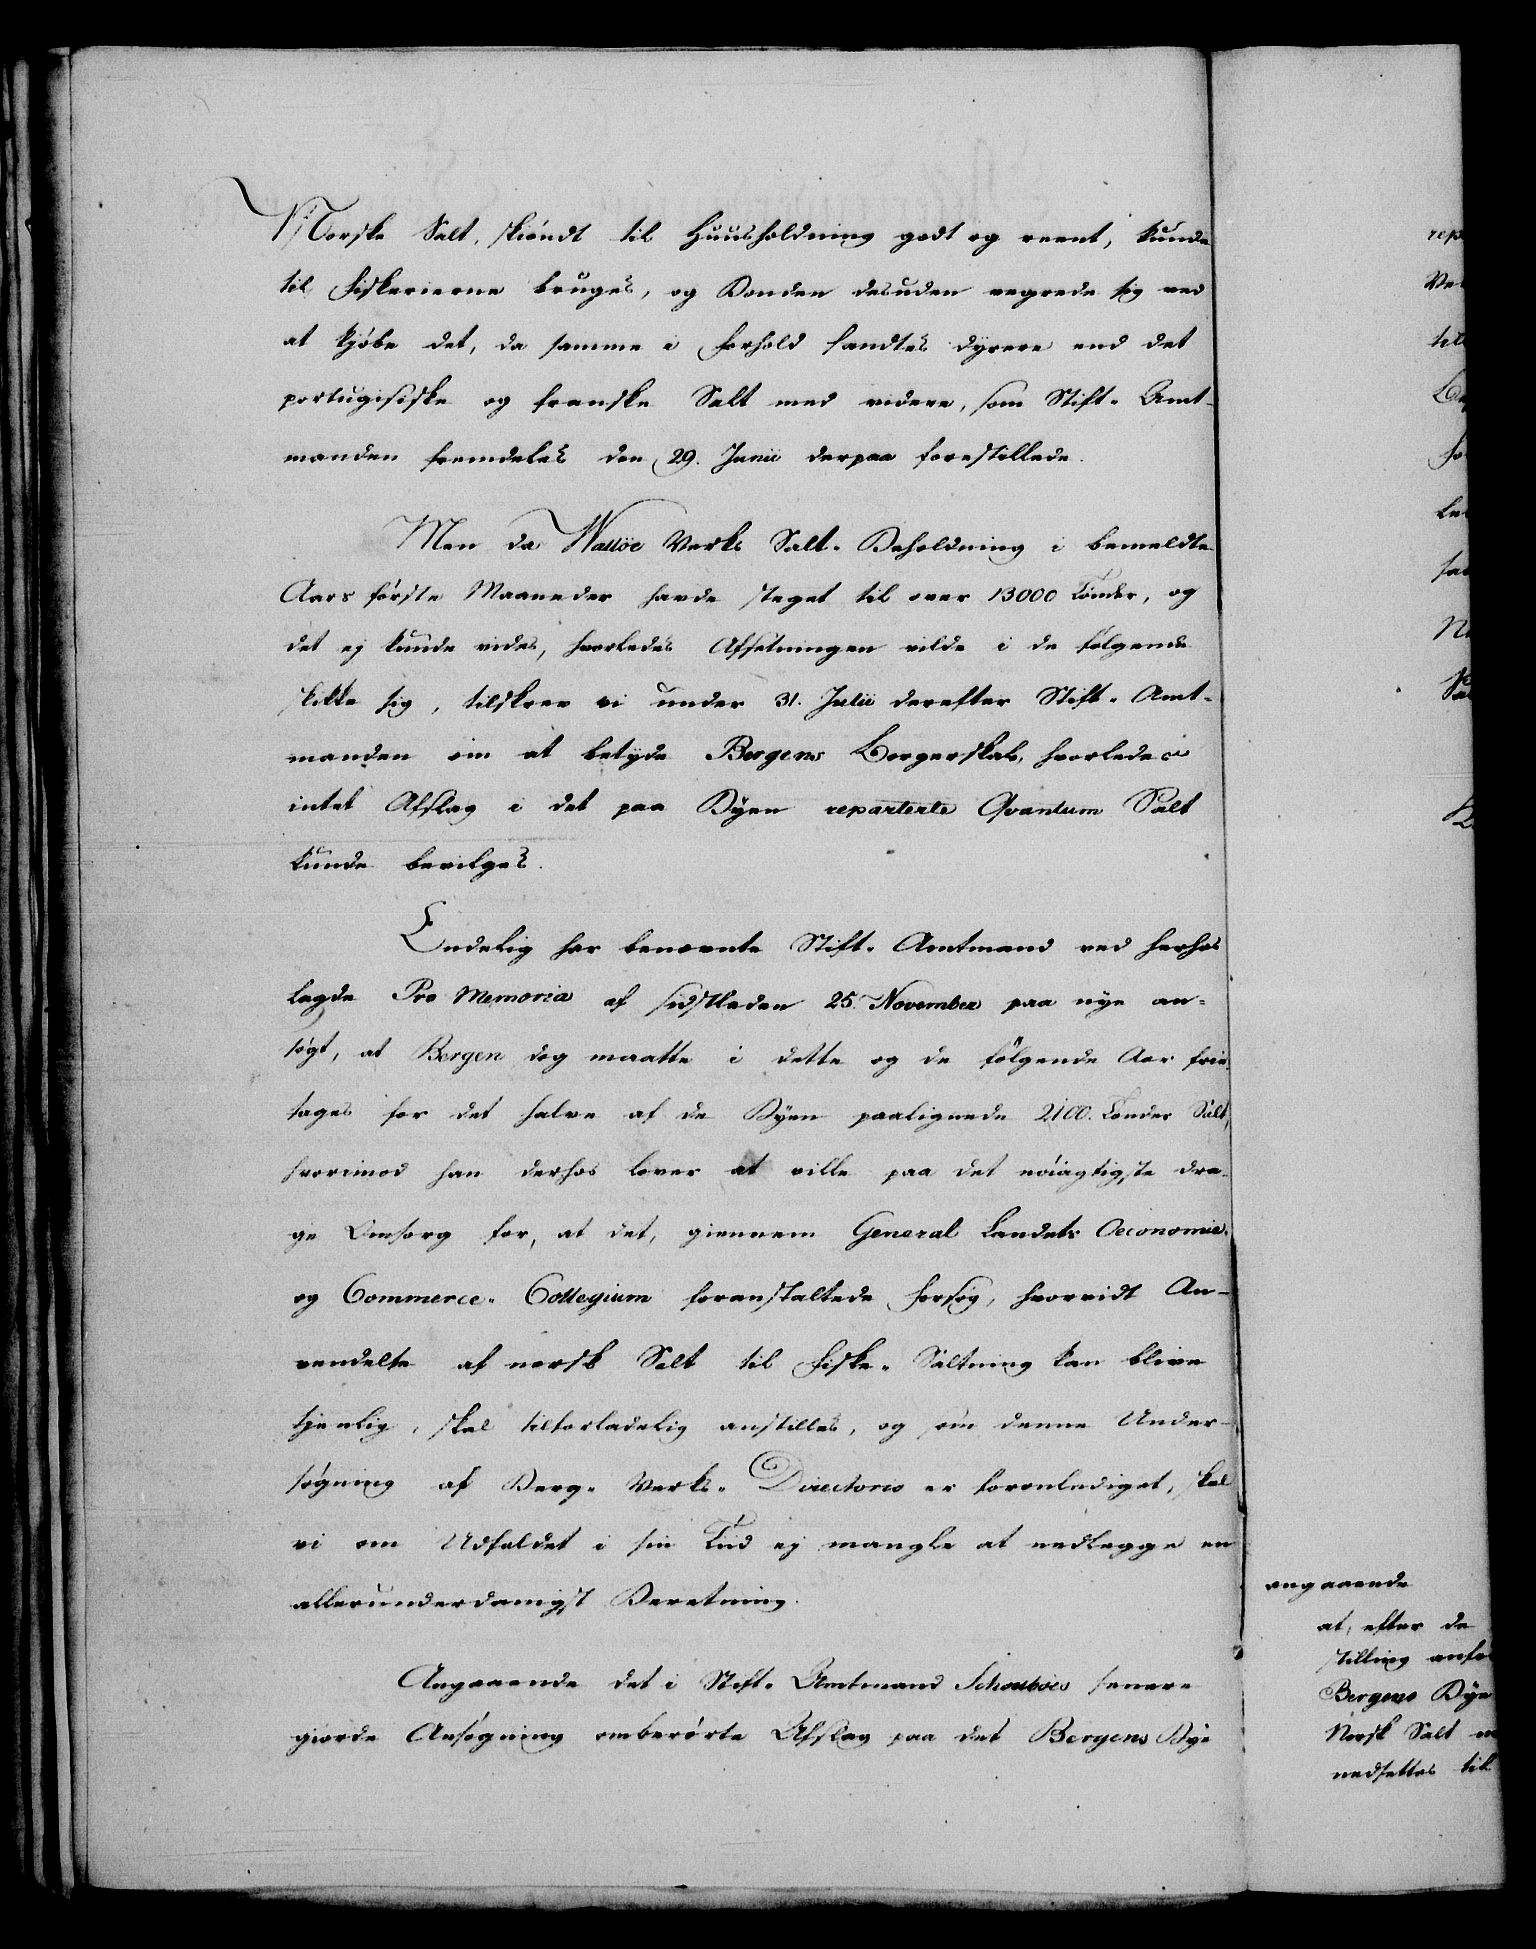 Norske Salt, skiöndt til Huusholdning godt og reent, kunde
til Fiskerierne bruges, og Bonden desuden vegrede sig ved
at kjöbe det, da samme i Forhold fandtes dyrere end det
portugisiske og franske Salt med videre, som Stift-Amt-
manden fremdeles den 29. Junii derpaa forestillede.
Men da Walløe Verks Salt-Beholdning i bemeldte
Aars förste Maaneder havde steget til over 13000 Tönder, og
det ej kunde vides, hvorledes Afsetningen vilde i de fölgende
skikke sig, tilskrev vi under 31. Julii derefter Stift-Amt-
manden om at betyde Bergens Borgerskab, hvorledes
intet Afslag i det paa Byen reparterte Qvantum Salt
kunde bevilges.
Endelig har benævnte Stift-Amtmand ved herhos
lagde Pro Memoria af sidstleden 25. November paa nye an-
sögt, at Bergen dog maatte i dette og de fölgende Aar frie
tages for det halve af de Byen paalignede 2100. Tönder Salt,
hvorimod han derhos lover at ville paa det nöiagtigste dra-
ge Omsorg for, at det, giennem General Landets Oeconomie-
og Commerce-Collegium foranstaltede Forsög, hvorvidt An-
vendelse af norsk Salt til Fiske-Saltning kan blive
tjenlig, skal tilforladelig anstilles, og som denne Under-
sögning af Berg-Verks-Directorio er foranlediget, skal
vi om Udfaldet i sin Tiid ej mangle at nedlegge en
allerunderdanigst Beretning.
Angaaende det i Stift-Amtmand Schouboes senere
giorde Ansögning omberörte Afslag paa det Bergens Bye
rep
til
angaaende
at, efter de
stilling anfö
Bergens Bye
Norsk Salt
nedsettes til